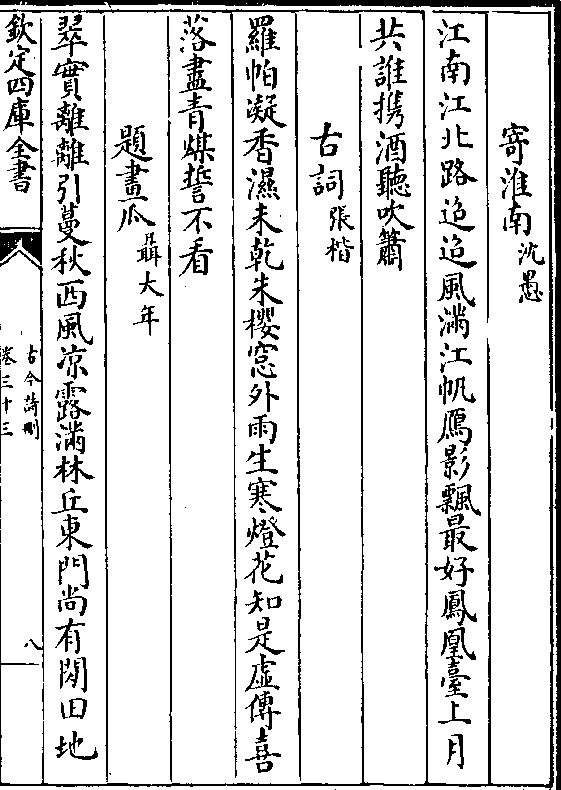 寄淮南沈愚
江南江北路迢迢風滿江帆鴈影飄最好鳳凰臺上月
共誰攜酒聽吹簫
古詞張楷
羅帕凝香濕未乾朱櫻窓外雨生寒燈花知是虛傳喜
落盡青煤誓不看
題畫瓜聶大年
翠實離離引蔓秋西風凉露滿林丘東門尚有閒田地
欽定四庫全書
古今詩刪
卷三十三
八